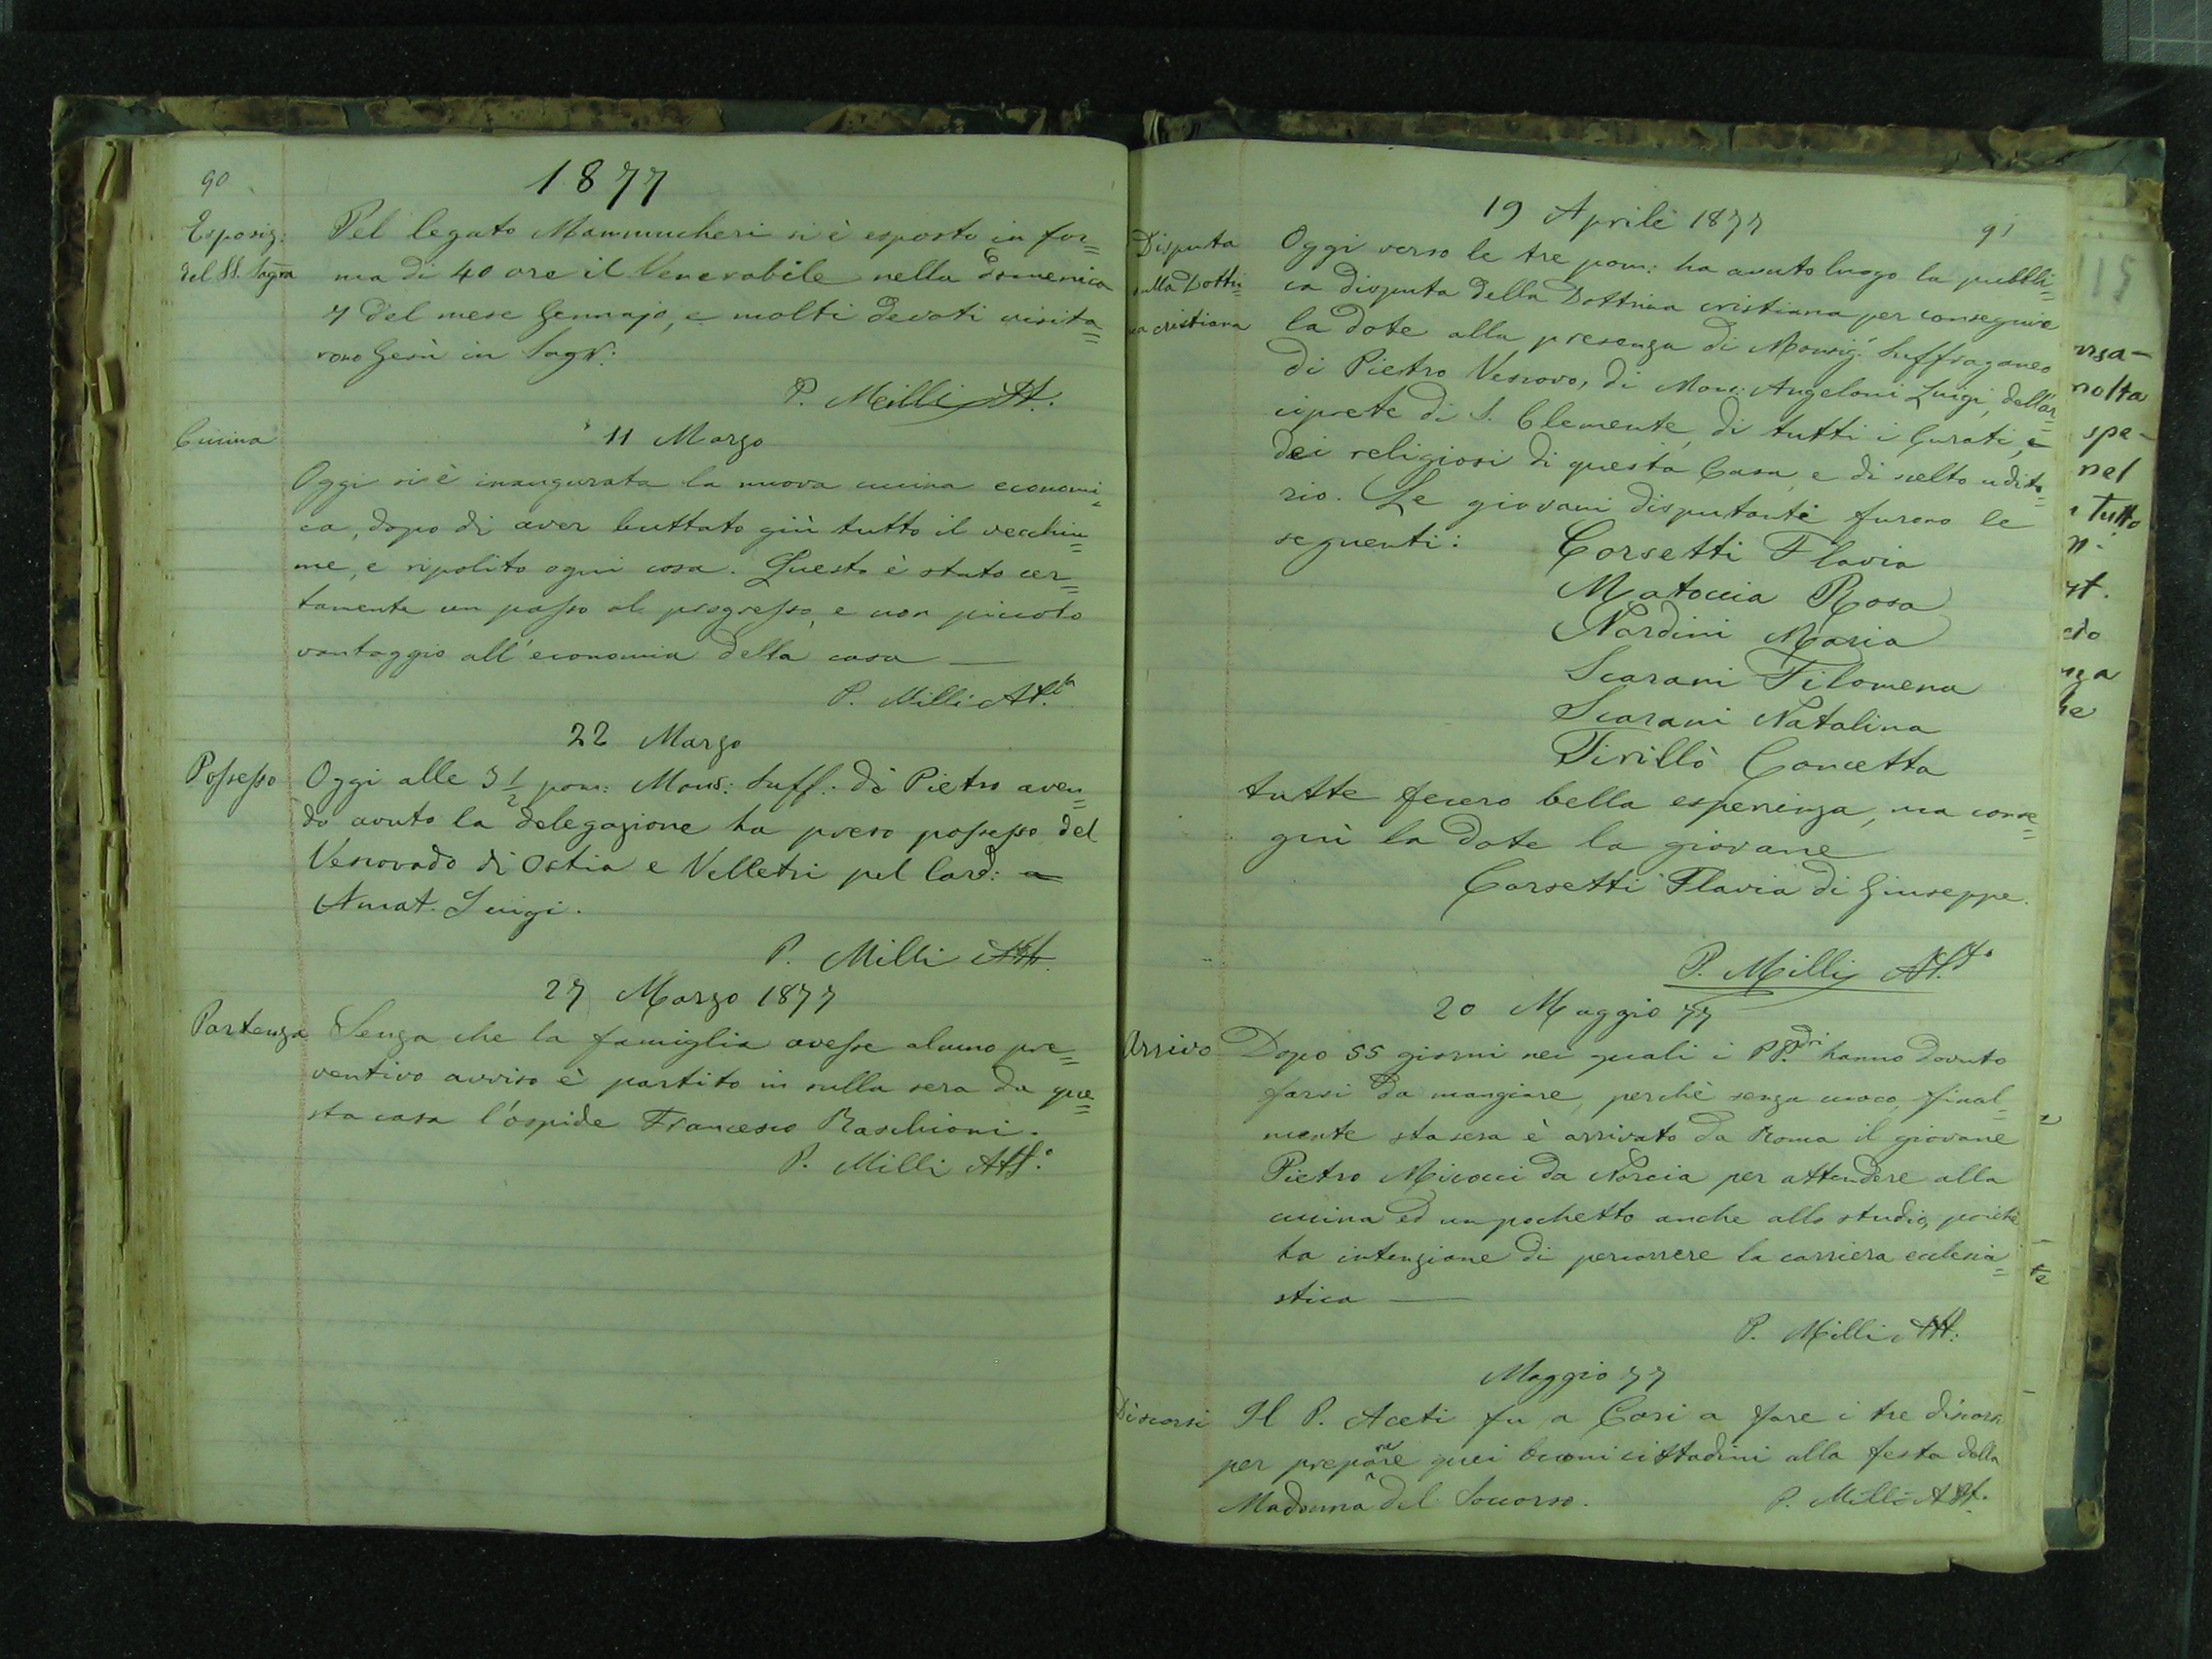 90
1877
Esposiz:
del SS. Sagra
Pel legato Mammucheri si è esposto in for=
ma di 40 ore il Venerabile nella domenica
7 del mese Gennajo, e molti devoti visita=
rono Gesù in Sagr:
P. Milli Att.
Cucina
11 Marzo
Oggi si è inaugurata la nuova cucina economi=
ca, dopo di aver buttato giù tutto il vecchiu=
me, e ripolito ogni cosa. Questo è stato cer=
tamente un passo al progresso, e non piccolo
vantaggio all'economia della casa —
P. Milli Att.
22 Marzo
Possesso
Oggi alle 3 1/2 pom: Mons: Suff. di Pietro aven=
do avuto la delegazione ha preso possesso del
Vescovado di Ostia e Velletri pel Card:
Amat. Luigi.
P. Milli Att.
27 Marzo 1877
Partenza
Senza che la famiglia avesse alcuno pre=
ventivo avviso è partito in sulla sera da que=
sta casa l'ospide Francesco Raschioni.
P. Milli Att.°
19 Aprile 1877
91
Disputa
sulla Dottri=
na cristiana
Oggi verso le tre pom: ha avuto luogo la pubbli=
ca disputa della Dottrina cristiana per conseguire
la dote alla presenza di Monsig.r Suffraganeo
di Pietro Vescovo, di Mons: Angeloni Luigi, dell'ar=
ciprete di S. Clemente, di tutti i Curati, e
dei religiosi di questa Casa, e di scelto udito=
rio. Le giovani disputanti furono le
seguenti:
Corsetti Flavia
Matoccia Rosa
Nardini Maria
Scarani Filomena
Scarani Natalina
Tirillò Concetta
tutte fecero bella esperienza, ma conse=
guì la dote la giovane
Corsetti Flavia di Giuseppe.
P. Milli Att.to
20 Maggio 77
Arrivo
Dopo 55 giorni nei quali i PP.dri hanno dovuto
farsi da mangiare, perchè senza cuoco, final=
mente stasera è arrivato da Roma il giovane
Pietro Micocci da Norcia per attendere alla
cucina ed un pochetto anche allo studio, poichè
ha intenzione di percorrere la carriera ecclesia=
stica —
P. Milli Att.
Maggio 77
Discorsi
Il P. Aceti fu a Cori a fare i tre discorsi
per preparare quei buoni cittadini alla festa della
Madonna del Soccorso.
P. Milli Att.
115
ursa-
molta
spe-
nel
tutto